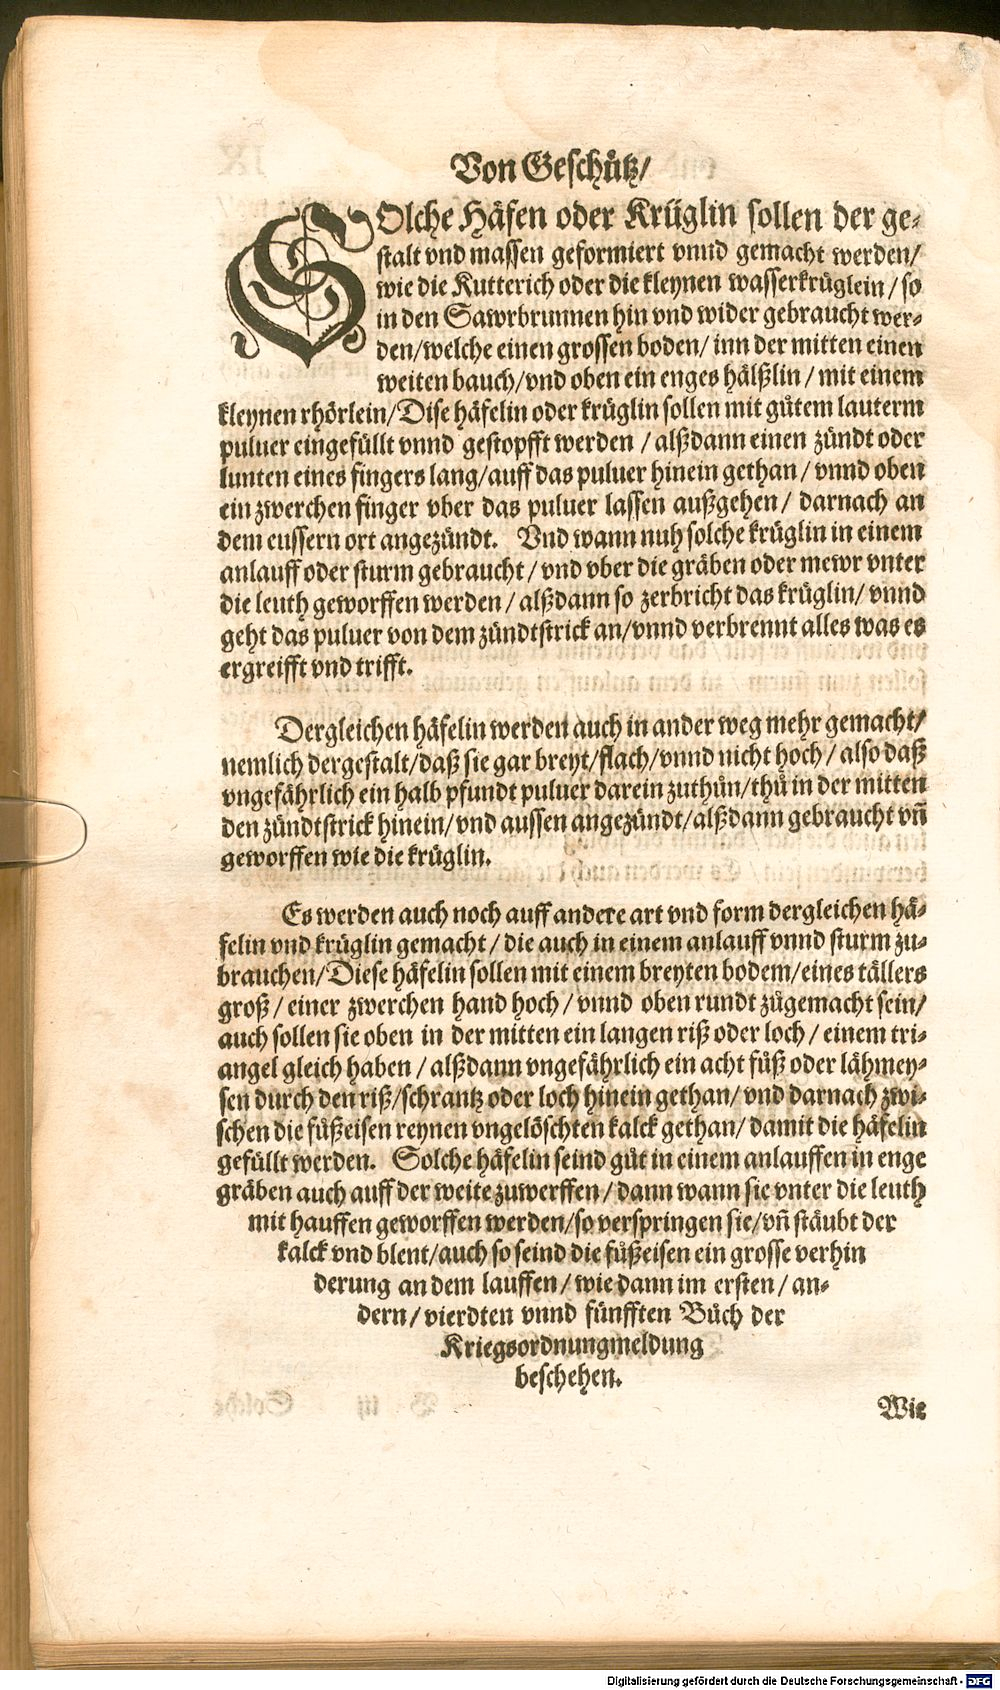 Von Geschütz/
SOlche Häfen oder Krüglin sollen der ge-
stalt vnd massen geformiert vnnd gemacht werden/
wie die Kutterich oder die kleynen wasserkrüglein/ so
in den Sawrbrunnen hin vnd wider gebraucht wer-
den/welche einen grossen boden/ inn der mitten einen
weiten bauch/vnd oben ein enges hälßlin/ mit einem
kleynen rhörlein/Dise häfelin oder krüglin sollen mit gůtem lauterm
puluer eingefüllt vnnd gestopfft werden / alßdann einen zündt oder
lunten eines fingers lang/auff das puluer hinein gethan/ vnnd oben
ein zwerchen finger vber das puluer lassen außgehen/ darnach an
dem eussern ort angezündt. Vnd wann nuh solche krüglin in einem
anlauff oder sturm gebraucht/ vnd vber die gräben oder mewr vnter
die leuth geworffen werden / alßdann so zerbricht das krüglin/ vnnd
geht das puluer von dem zündtstrick an/vnnd verbrennt alles was es
ergreifft vnd trifft.
Dergleichen häfelin werden auch in ander weg mehr gemacht/
nemlich dergestalt/daß sie gar breyt/flach/vnnd nicht hoch/ also daß
vngefährlich ein halb pfundt puluer darein zuthůn/thů in der mitten
den zündtstrick hinein/vnd aussen angezündt/alßdann gebraucht vñ
geworffen wie die krüglin.
Es werden auch noch auff andere art vnd form dergleichen hä-
felin vnd krüglin gemacht/ die auch in einem anlauff vnnd sturm zu-
brauchen/Diese häfelin sollen mit einem breyten bodem/eines tällers
groß/ einer zwerchen hand hoch/ vnnd oben rundt zůgemacht sein/
auch sollen sie oben in der mitten ein langen riß oder loch/ einem tri-
angel gleich haben / alßdann vngefährlich ein acht fůß oder lähmey-
sen durch den riß/schrantz oder loch hinein gethan/ vnd darnach zwi-
schen die fůßeisen reynen vngelöschten kalck gethan/ damit die häfelin
gefüllt werden. Solche häfelin seind gůt in einem anlauffen in enge
gräben auch auff der weite zuwerffen/ dann wann sie vnter die leuth
mit hauffen geworffen werden/so verspringen sie/vñ stäubt der
kalck vnd blent/auch so seind die fůßeisen ein grosse verhin
derung an dem lauffen/ wie dann im ersten/ an-
dern/ vierdten vnnd fünfften Bůch der
Kriegsordnungmeldung
beschehen.
Wie
Digitalisierung gefördert durch die Deutsche Forschungsgemeinschaft - DFG